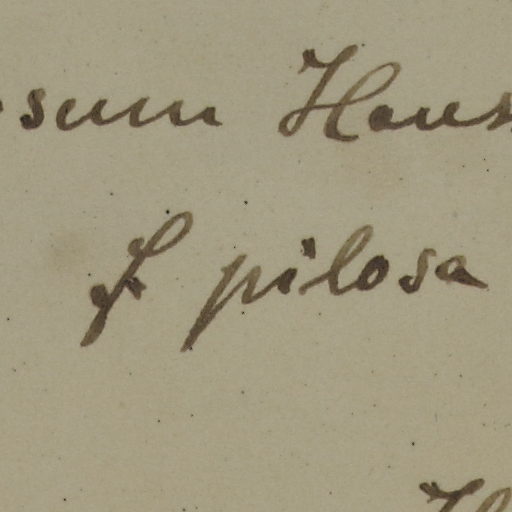 sum Haus
f pilosa